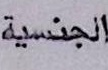 الجنسية